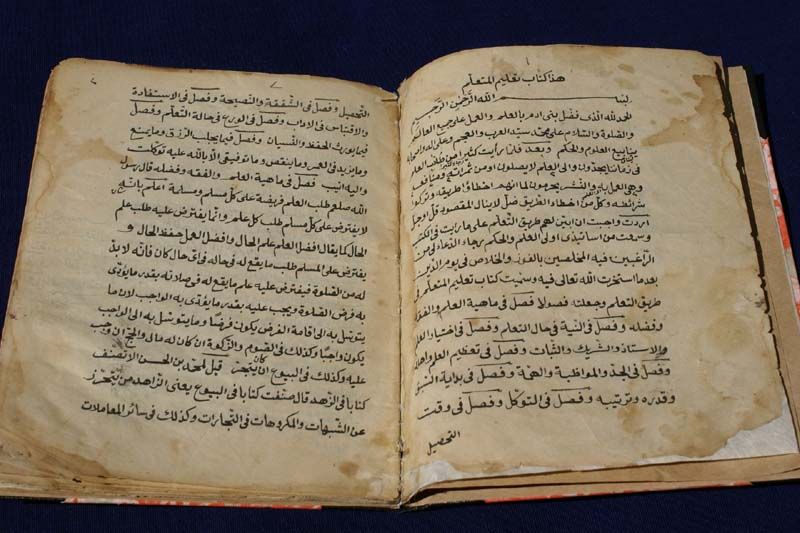 هذا كتاب تعليم المتعلم
بسم الله الرحمن الرحيم
الحمد لله الذى فضل بنى ادم بالعلم والعمل على جميع العالم
والصلوة والسلام على محمد سيد العرب والعجم وعلى اله واصحابه
ينابيع العلوم والحكم وبعد فلما رأيت كثيرا من طلاب العلم
فى زماننا يجدون والى العلم لا يصلون او من ثمراته ومنافعه
وهى العمل به والنشر يحرمون لما انهم اخطاؤا طريقه وتركوا
شرائطه وكل من اخطاء الطريق ضل لا ينال المقصود قل او جل
اردت واحببت ان ابين لهم طريق التعلم على ما رأيت فى الكتب
وسمعت من اساتيذى اولى العلم والحكم رجاء الدعاء لى من
الراغبين فيه المخلصين بالفوز والخلاص فى يوم الدين
بعد ما استخرت الله تعالى فيه وسميت كتاب تعليم المتعلم فى
طريق التعلم وجعلته فصولا فصل فى ماهية العلم والفقه
وفضله وفصل فى النية فى حال التعلم وفصل فى اختيار العلم
والاستاذ والشريك والثبات وفصل فى تعظيم العلم واهله
وفصل فى الجد والمواظبة والهمة وفصل فى بداية السبق
وقدره وترتيبه وفصل فى التوكل وفصل فى وقت
التحصيل
التحصيل وفصل فى الشفقة والنصيحة وفصل فى الاستفادة
والاقتباس فى الاداب وفصل فى الورع فى حالة التعلم وفصل
فيما يورث الحفظ والنسيان وفصل فيما يجلب الرزق وما يمنع
وما يزيد فى العمر وما ينقص وما توفيقى الا بالله عليه توكلت
واليه انيب فصل فى ماهية العلم والفقه وفضله قال رسول
الله صلعم طلب العلم فريضة على كل مسلم ومسلمة اعلم بانه
لا يفترض على كل مسلم طلب كل علم وانما يفترض عليه طلب علم
الحال كما يقال افضل العلم علم الحال وافضل العمل حفظ الحال و
يفترض على المسلم طلب ما يقع له فى حاله فى اى حال كان فانه لا بد
له من الصلوة فيفترض عليه علم ما يقع له فى صلاته بقدر ما يؤدى
به فرض الصلوة ويجب عليه بقدر ما يؤدى به الواجب لان ما
يتوسل به الى اقامة الفرض يكون فرضا وما يتوسل به الى الواجب
يكون واجبا وكذلك فى الصوم والزكوة ان كان له مال والحج ان وجب
عليه وكذلك فى البيوع ان كان يتجر قيل لمحمد بن الحسن الا تصنف
كتابا فى الزهد قال صنفت كتابا فى البيوع يعنى الزاهد من يتحرز
عن الشبهات والمكروهات فى التجارات وكذلك فى سائر المعاملات